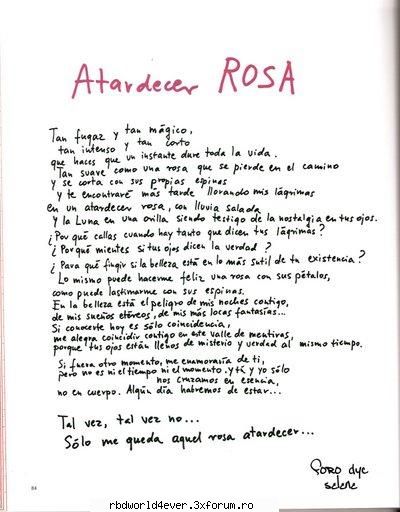 Atardecer ROSA
Tan fugaz y tan mágico,
tan intenso y tan corto
que haces que un instante dure toda la vida.
Tan suave como una rosa que se pierde en el camino
y se corta con sus propias espinas
y te encontraré más tarde llorando mis lágrimas
en un atardecer rosa, con lluvia salada
y la Luna en una orilla siendo testigo de la nostalgia en tus ojos.
¿Por qué callas cuando hay tanto que dicen tus lágrimas?
¿Porqué mientes si tus ojos dicen la verdad?
¿Para qué fingir si la belleza está en lo más sutil de tu existencia?
Lo mismo puede hacerme feliz una rosa con sus pétalos,
como puede lastimarme con sus espinas.
En la belleza está el peligro de mis noches contigo,
de mis sueños etéreos, de mis más locas fantasías...
Si conocerte hoy es sólo coincidencia,
me alegra coincidir contigo en este valle de mentiras,
porque tus ojos están llenos de misterio y verdad al mismo tiempo.
Si fuera otro momento, me enamoraría de ti,
pero no es ni el tiempo ni el momento. y tú y yo sólo
nos cruzamos en esencia,
no en cuerpo. Algún día habremos de estar...
Tal vez, tal vez no...
Sólo me queda aquel rosa atardecer...
dye
selene
84
rbdworld4ever.3xforum.ro